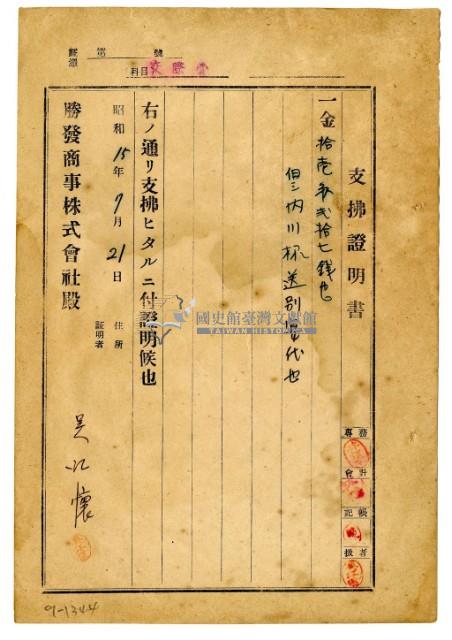 證憑 第 號
科目 交際費
支拂證明書
一金拾壱円弐拾七銭也
但シ内川様送別
代也
右ノ通リ支拂ヒタルニ付證明候也
昭和15年7月21日
住所
証明者
吳江懷
勝發商事株式會社殿
專務
會計
記帳
扱者
國史館臺灣文獻館
TAIWAN HISTORICA
9-1344